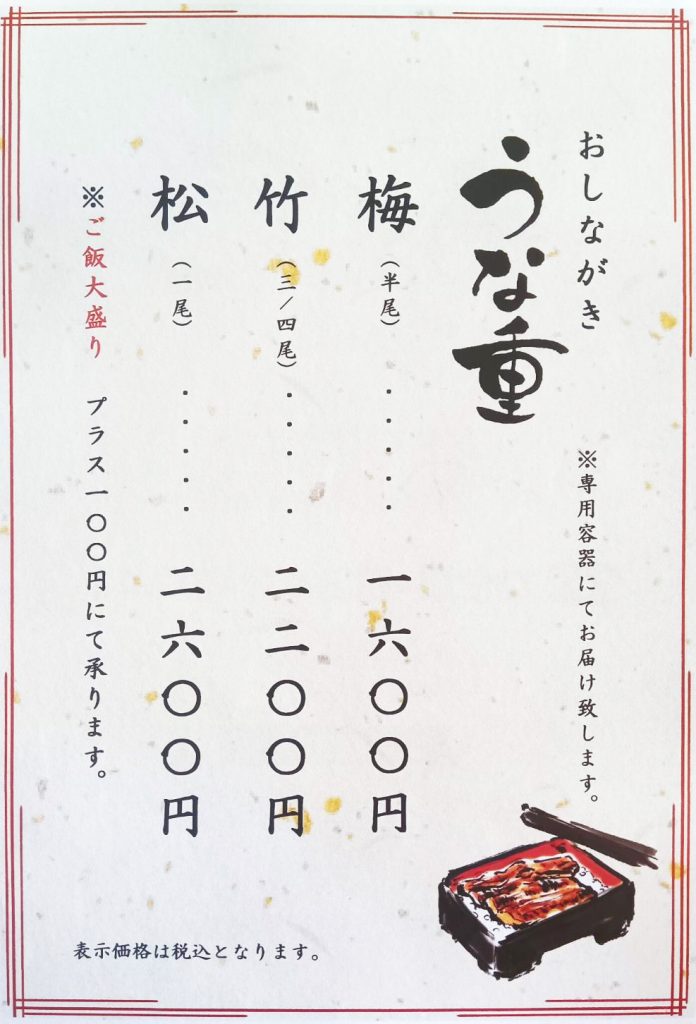 おしながき
※専用容器にてお届け致します。
うな重
梅（半尾）・・・・・一六〇〇円
竹（三／四尾）・・・・・二二〇〇円
松（一尾）・・・・・二六〇〇円
※ご飯大盛り　プラス一〇〇円にて承ります。
表示価格は税込となります。